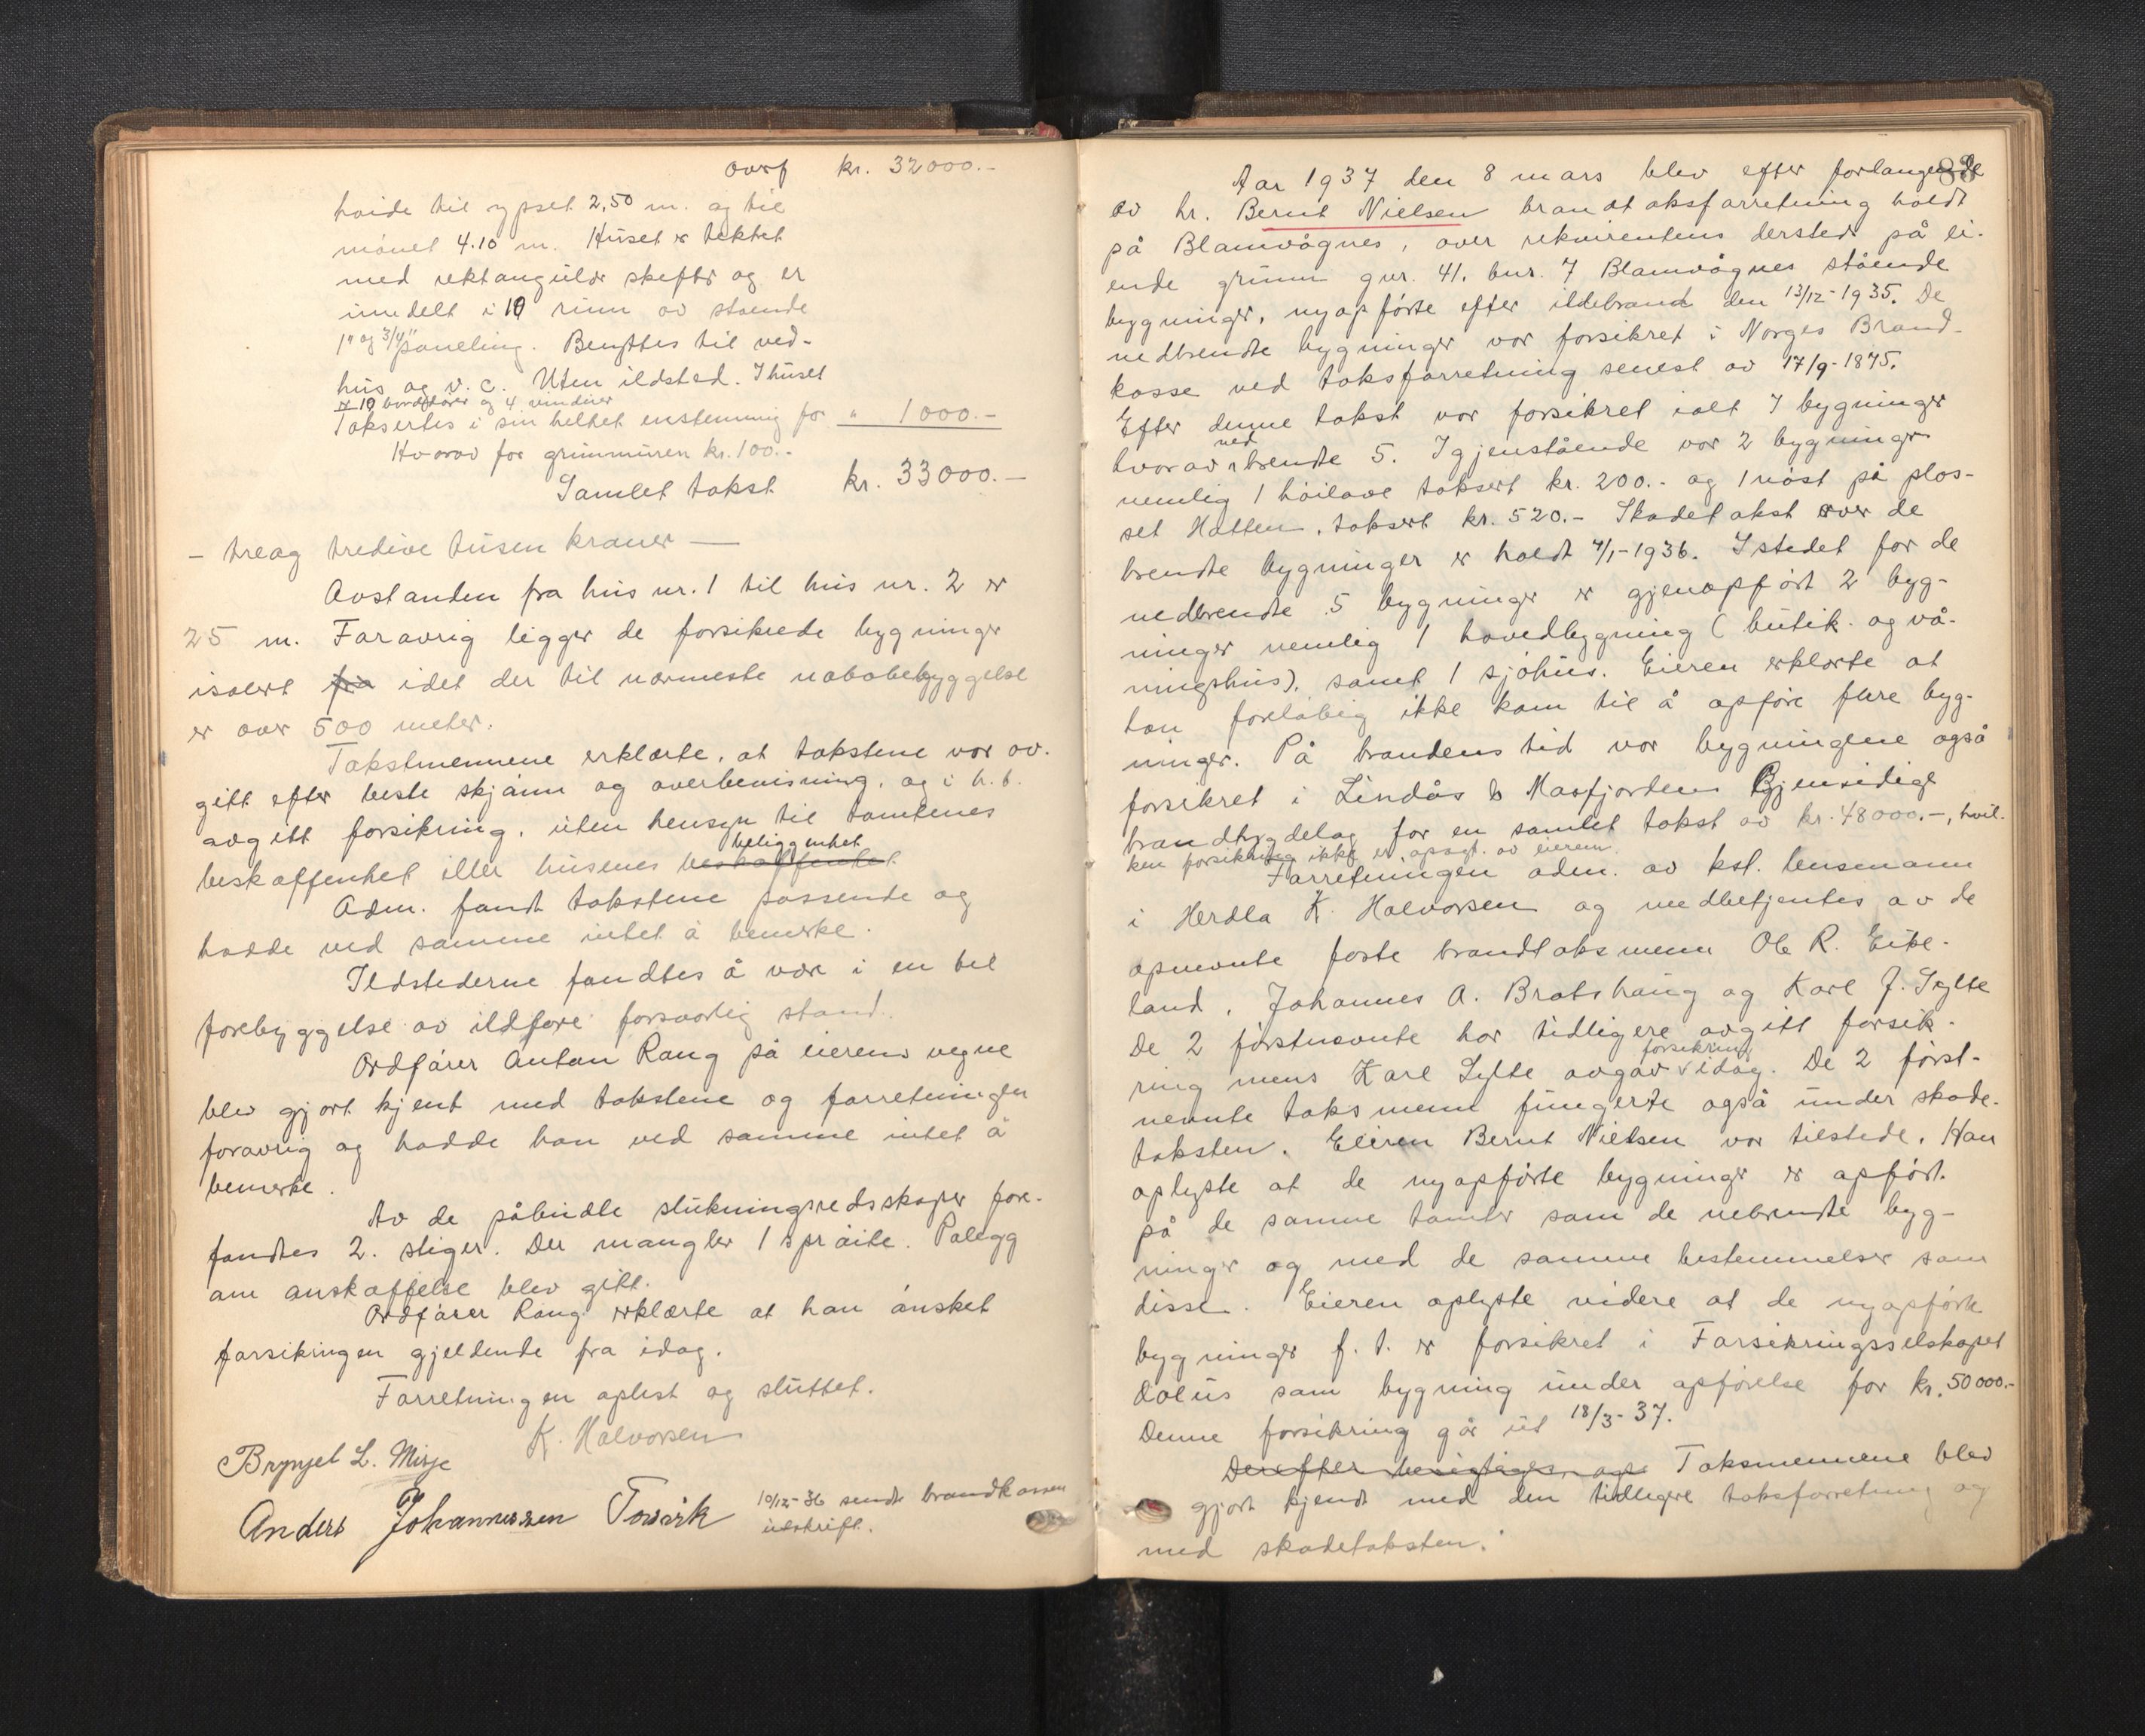 Overf kr. 32000.-
høide til ypset 2,50 m. og til
mønet 4.10 m. Huset er tektet
med rektangulær skefer og er
inndelt i 10 rum av stående
1" og 3/4" paneling. Benyttes til ved-
hus og v. c. Uten ildsted. I huset
er 10 borddører og 4 vinduer
Taksertes i sin helhet enstemmig for " 1000.-
Hvorav for grunnmuren kr. 100.-
Samlet takst kr. 33000.-
- treog tredive tusen kroner -
Avstanden fra hus nr. 1 til hus nr. 2 er
25 m. Forøvrig ligger de forsikrede bygninger
isolert fra idet der til nærmeste nabobebyggelse
er over 500 meter.
Takstmennene erklærte, at takstene var av-
gitt efter beste skjønn og overbevisning, og i h. t.
avgitt forsikring, uten hensyn til tomtenes
beliggenhet
beskaffenhet eller husenes beskaffenhet
Adm. fandt takstene passende og
hadde ved samme intet å bemerke.
Ildstederne fandtes å være i en til
forebyggelse av ildfare forsvarlig stand.
Ordfører Anton Rong på eierens vegne
blev gjort kjent med takstene og forretningen
forøvrig og hadde han ved samme intet å
bemerke.
Av de påbudte slukningsredsskaper fore-
fandtes 2. stiger. Der mangler 1 sprøite. Pålegg
om anskaffelse blev gitt.
Ordfører Rong erklærte at han ønsket
forsikringen gjeldende fra idag.
Forretningen oplest og sluttet.
K. Halvorsen
Brynjel L. Misje
Anders Johannessen Torsvik
10/12-36 sendt brandkassen
utskrift.
88
Aar 1937 den 8 mars blev efter forlangende
av hr. Bernt Nielsen brandtaksforretning holdt
på Blomvågnes, over rekvirentens dersteds på ei-
ende grunn gnr. 41, bnr. 7 Blomvågnes stående
bygninger, nyopførte efter ildebrand den 13/12-1935. De
nedbrendte bygninger var forsikret i Norges Brand-
kasse ved taksforretning senest av 17/9-1875.
Efter denne takst var forsikret ialt 7 bygninger
ned
hvorav brendte 5. Igjenstående var 2 bygninger
nemlig 1 høilave taksert kr. 200.- og 1 nøst på plas-
set Hatten, taksert kr. 520.- Skadetakst over de
brendte bygninger er holdt 4/1-1936. Istedet for de
nedbrendte 5 bygninger er gjenopført 2 byg-
ninger nemlig 1 hovedbygning (butik og vå-
ningshus), samt 1 sjøhus. Eieren erklærte at
han foreløbig ikke kom til å opføre flere byg-
ninger. På brandens tid var bygningene også
forsikret i Lindås & Masfjorden Gjensidige
brandbygdelag for en samlet takst av kr. 48000.-, hvil-
ken forsikring ikke er opsagt av eieren.
Forretningen adm. av kst. lensmann
i Herdla K. Halvorsen og medbetjentes av de
opnevnte faste brandtaksmenn Ole R. Eike-
land, Johannes A. Bratshaug og Karl J. Sylte
De 2 førstnevnte har tidligere avgitt forsik-
forsikring
ring mens Karl Sylte avgav idag. De 2 først-
nevnte taksmenn fungerte også under skade-
taksten. Eieren Bernt Nielsen var tilstede. Han
oplyste at de nyopførte bygninger er opført
på de samme tomter som de nebrendte byg-
ninger og med de samme bestemmelser som
disse. Eieren oplyste videre at de nyopførte
bygninger f. t. er forsikret i Forsikringsselskapet
Dolus som bygning under opførelse for kr. 50000.-
Denne forsikring går ut 18/3-37.
Derefter besigtiges ogs Taksmennene blev
gjort kjendt med den tidligere taksforretning og
med skadetaksten.